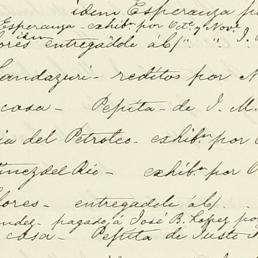 idem Esperanza p
Esperanza - exhibn por Octe y Nove
idem
lores entregádole á c/ " " J.
Landazuri - réditos por N
casa - Pepita - de J. M.
ía del Petroleo - exhibn por O
tínez del Rio - exhibn por O
lores - entregádole á c/
ndez - pagado, á José B. López po
casa - Pepita de Justo